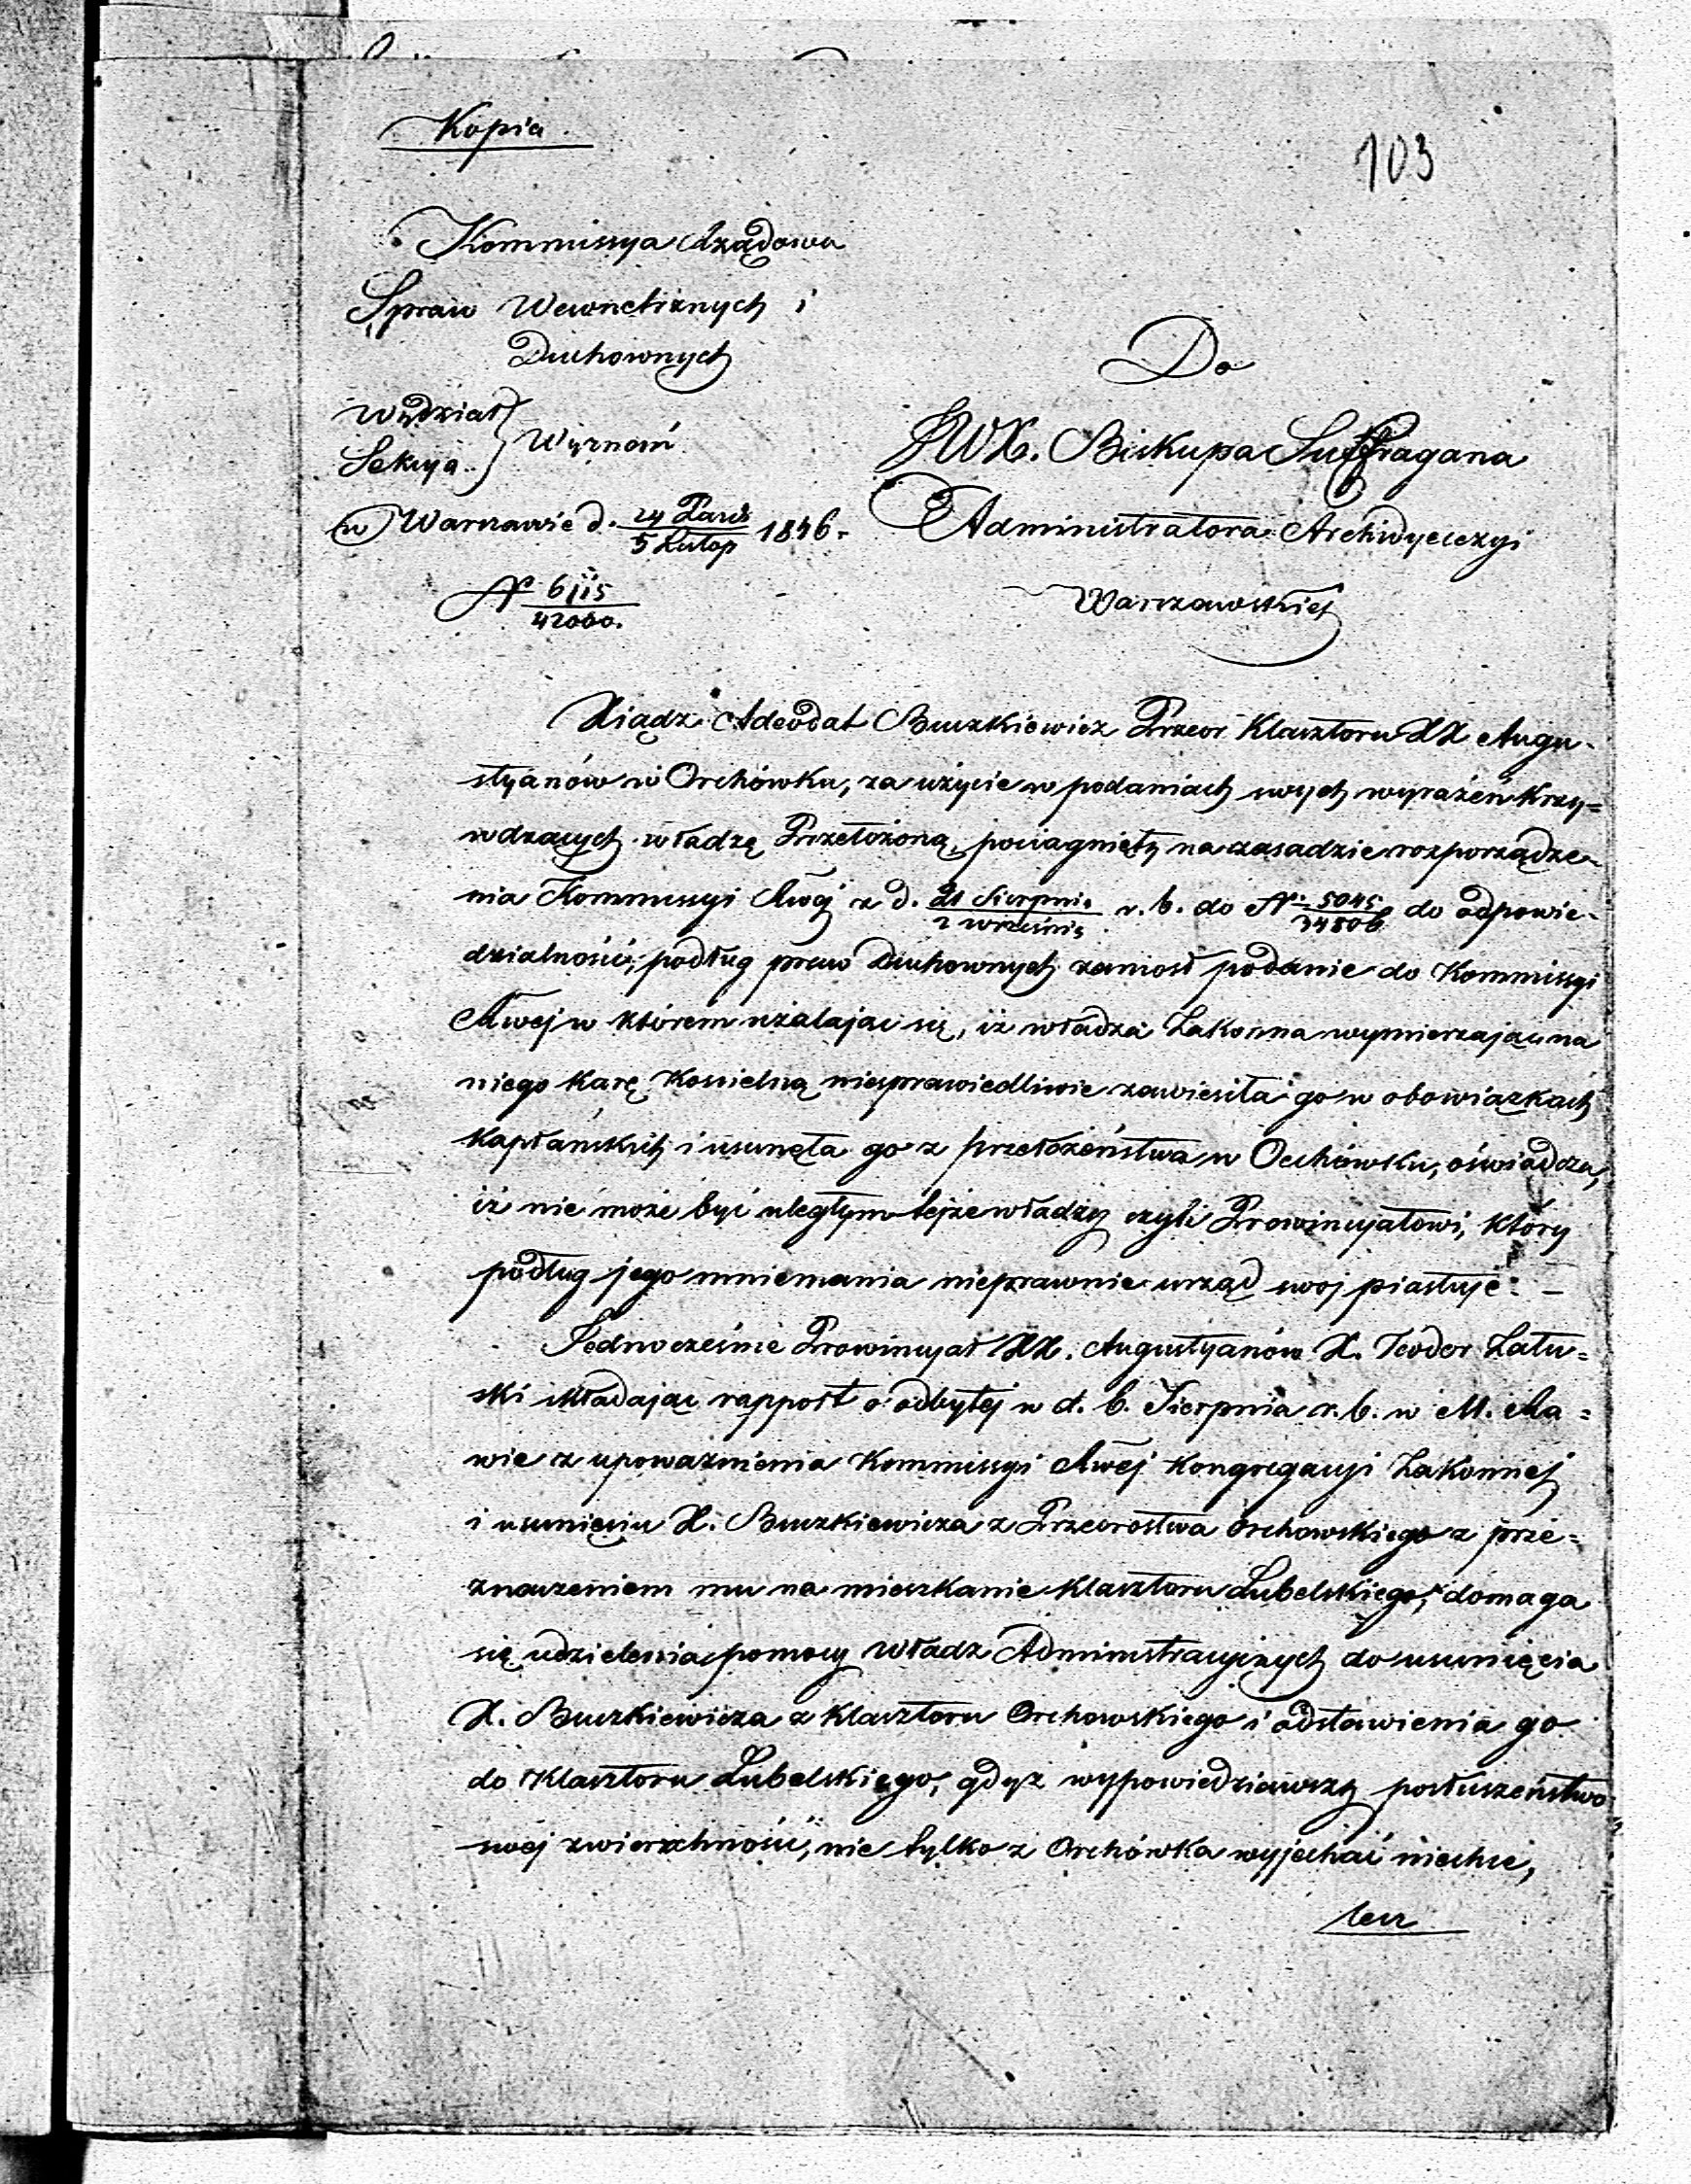 Kopia.
103
Kommissya Rządowa
Spraw Wewnetrznych i
Duchownych
Wydział
Sekcya
Wyznań
w Warszawie d. 24 Paźd. / 5 Listop 1846.
N° 6115 / 42000.
Do
JWX. Biskupa Suffragana
Administratora Archidyecezyi
Warszawskiej
Xiądz Adeodat Buczkiewicz Przeor Klasztoru XX Augu-
styanów w Orchówku, za użycie w podaniach swych wyrażeń krzy=
wdzących władzę Przełożoną, pociągnięty na zasadzie rozporządze-
nia Kommissyi Rwój z d. 21 Sierpnia / 2 września r. b. do N° 5045 / 34806 do odpowie-
dzialności, podług praw Duchownych zaniosł podanie do Kommissyi
Rwej w którem użalając się, iż władza Zakonna wymierzając na
niego karę Kościelną niesprawiedliwie zawiesiła go w obowiązkach
Kapłańskich i usunęła go z przełożeństwa w Orchówku, oświadcza,
iż nie może być uległym tejże władzy czyli Prowincyałowi, który
podług jego mniemania nieprawnie urząd swoj piastuje. —
Jednocześnie Prowincyał XX. Augustyanów X. Teodor Latu=
ski składając rapport o odbytej w d. 6. Sierpnia r. b. w M. Ra=
wie z upoważnienia Kommissyi Rwej Kongregacyi Zakonnej
i usunięciu X. Buczkiewicza z Przeorostwa Orchowskiego z prze=
znaczeniem mu na mieszkanie Klasztoru Lubelskiego, domaga
się udzielenia pomocy Władz Administracyjnych do usunięcia
X. Buczkiewicza z Klasztoru Orchowskiego i odstawienia go
do Klasztoru Lubelskiego, gdyż wypowiedziawszy posłuszeństwo
swej zwierzchności, nie tylko z Orchówka wyjechać niechce,
lecz